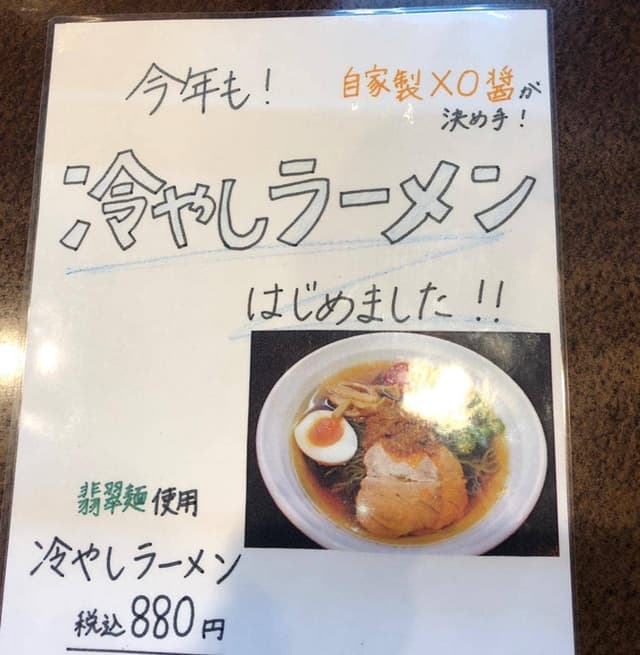 今年も!
自家製XO醤が
決め手!
冷やしラーメン
はじめました!!
翡翠麺使用
冷やしラーメン
税込880円